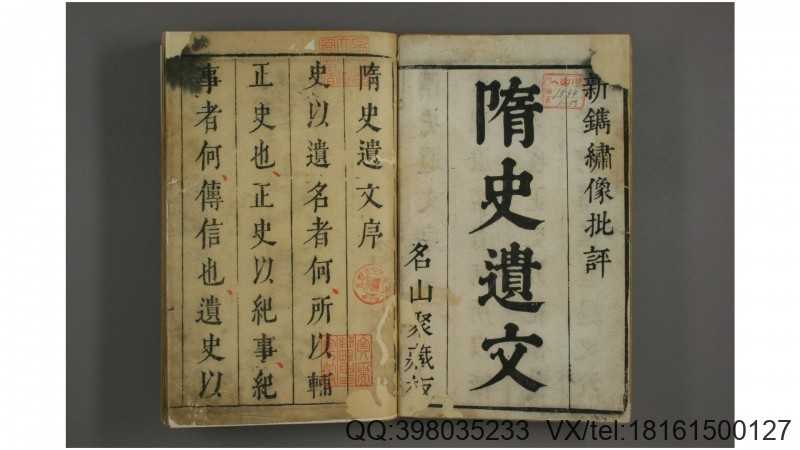 新鐫繡像批評
隋史遺文
名山聚藏板
隋史遺文序
史以遺名者何所以輔
正史也正史以紀事紀
事者何傳信也遺史以
QQ:398035233 VX/tel:18161500127